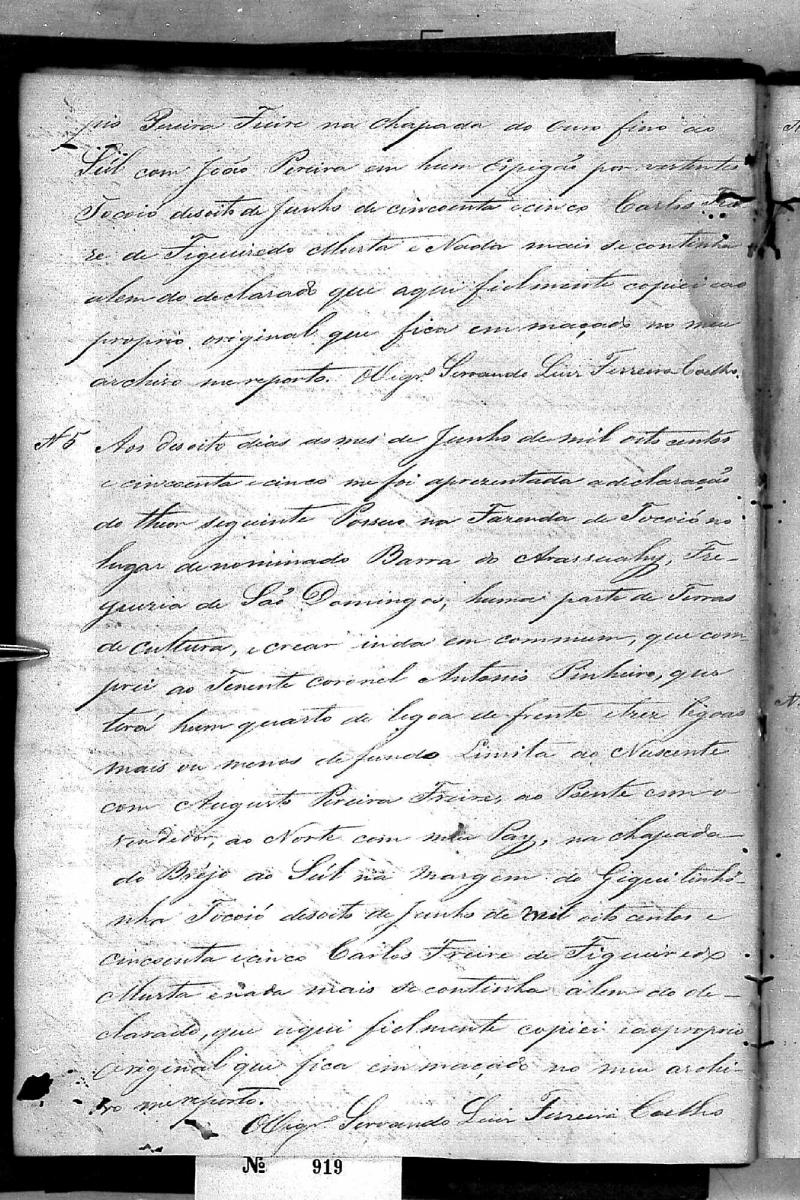 pio Pereira Freire na chapada do Ouro fino ao
Sul com João Pereira em hum espigão por vertentes
Tocoio desoito de Junho de cincoenta e cinco Carlos Frei
re de Figueiredo Murta e Nada mais se continha
alem do declarado que aqui fielmente copiei e ao
proprio original que fica emmaçado no meu
archivo me reporto. O Vigrº Servando Luiz Ferreira Coelho.
N 5 Aos desoito dias do mes de Junho de mil oito centos
e cincoenta e cinco me foi aprezentada a declaração
do theor seguinte Possuo na Fazenda de Tocoió no
lugar denominado Barra do Arassuahy, Fre-
guezia de Saõ Domingos, huma parte de Terras
de Cultura, e crear inda em commum, que com
prei ao Tenente Coronel Antonio Pinheiro, que
terá hum quarto de legoa de frente e trez legoas
mais ou menos de fundo Limita ao Nascente
com Augusto Pereira Freire, ao Poente com o
vendedor, ao Norte com meu Pay, na chapada
do Bréjo ao Súl na margem do Giquitinhó-
nha Tocoió desoito de Junho de mil oito centos e
cincoenta e cinco Carlos Freire de Figueiredo
Murta e nada mais se continha alem do de-
clarado, que aqui fielmente copiei e ao proprio
Original que fica emmaçado no meu archi-
vo me reporto.
O Vigrº Servando Luiz Ferreira Coelho
Nº 919